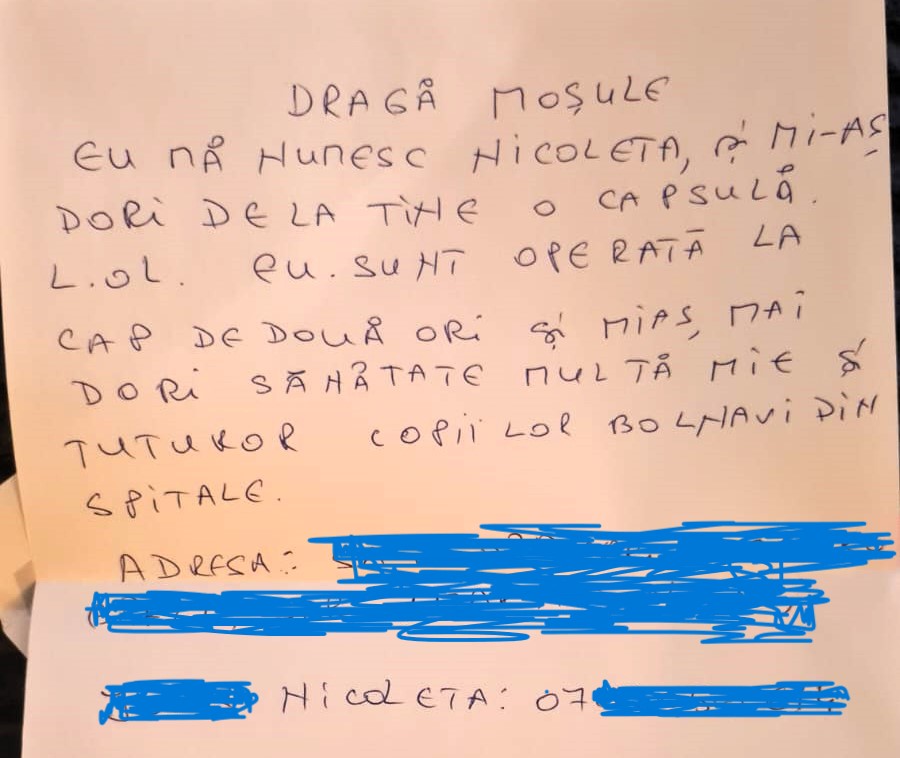 DRAGĂ MOȘULE
EU MĂ NUMESC NICOLETA, ȘI MI-AȘ
DORI DE LA TINE O CAPSULĂ.
L.OL. EU.SUNT OPERATĂ LA
CAP DE DOUĂ ORI ȘI MIAȘ, MAI
DORI SĂNĂTATE MULTĂ MIE ȘI
TUTUROR COPIILOR BOLNAVI DIN
SPITALE.
ADRESA:
NICOLETA: 07